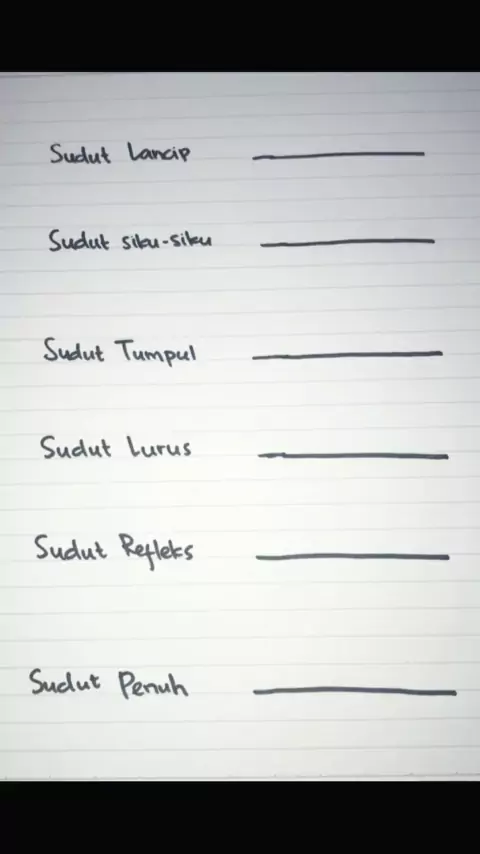 Sudut Lancip
Sudut siku-siku
Sudut Tumpul
Sudut Lurus
Sudut Refleks
Sudut Penuh